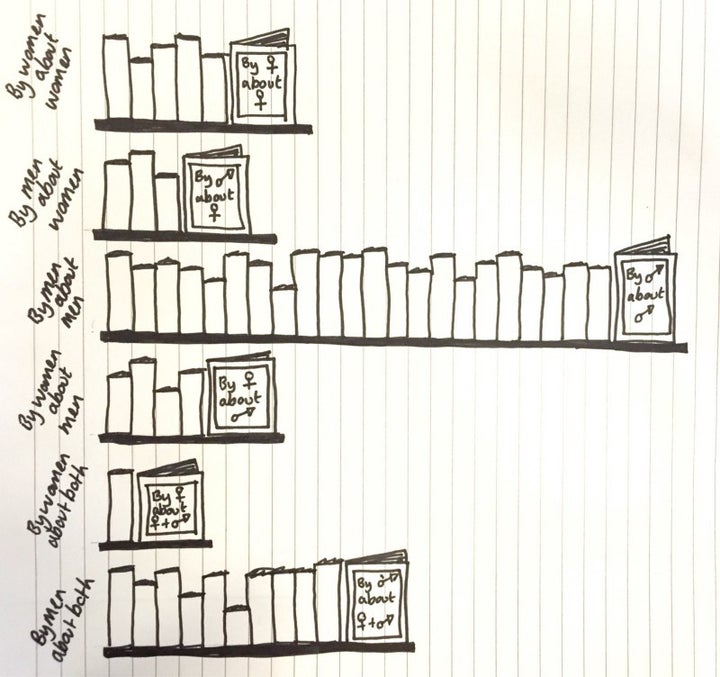 By women
about
women
By ♀
about
♀
By men
about
women
By ♂
about
♀
By men
about
men
By ♂
about
♂
By women
about
men
By ♀
about
♂
By women
about both
By ♀
about
♀+♂
By men
about both
By ♂
about
♀+♂